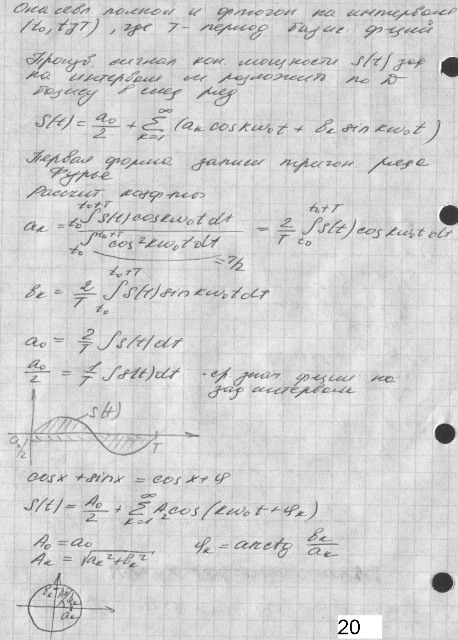 Она явл. полной и ортогон на интервале
(t₀, t₀+T), где T - период базис. функций
Произв сигнал кон. мощности S(t) зад
на интервале м разложить по D
базису в след ряд
S(t) = a₀/2 + ∑_{k=1}^{∞} (aₖ cos kω₀t + bₖ sin kω₀t)
Первая форма записи тригон ряда
Фурье
Рассчит коэф-ты
aₖ = ∫_{t₀}^{t₀+T} S(t) cos kω₀t dt / ∫_{t₀}^{t₀+T} cos² kω₀t dt = 2/T ∫_{t₀}^{t₀+T} S(t) cos kω₀t dt
= T/2
bₖ = 2/T ∫_{t₀}^{t₀+T} S(t) sin kω₀t dt
a₀ = 2/T ∫ S(t) dt
a₀/2 = 1/T ∫ S(t) dt - ср. знач функции на
зад интервале
S(t)
a₀/2 T
cos x + sin x = cos x + φ
S(t) = A₀/2 + ∑_{k=1}^{∞} Aₖ cos (kω₀t + φₖ)
A₀ = a₀ φₖ = arctg bₖ/aₖ
Aₖ = √aₖ² + bₖ²
bₖ Aₖ φₖ
aₖ
20